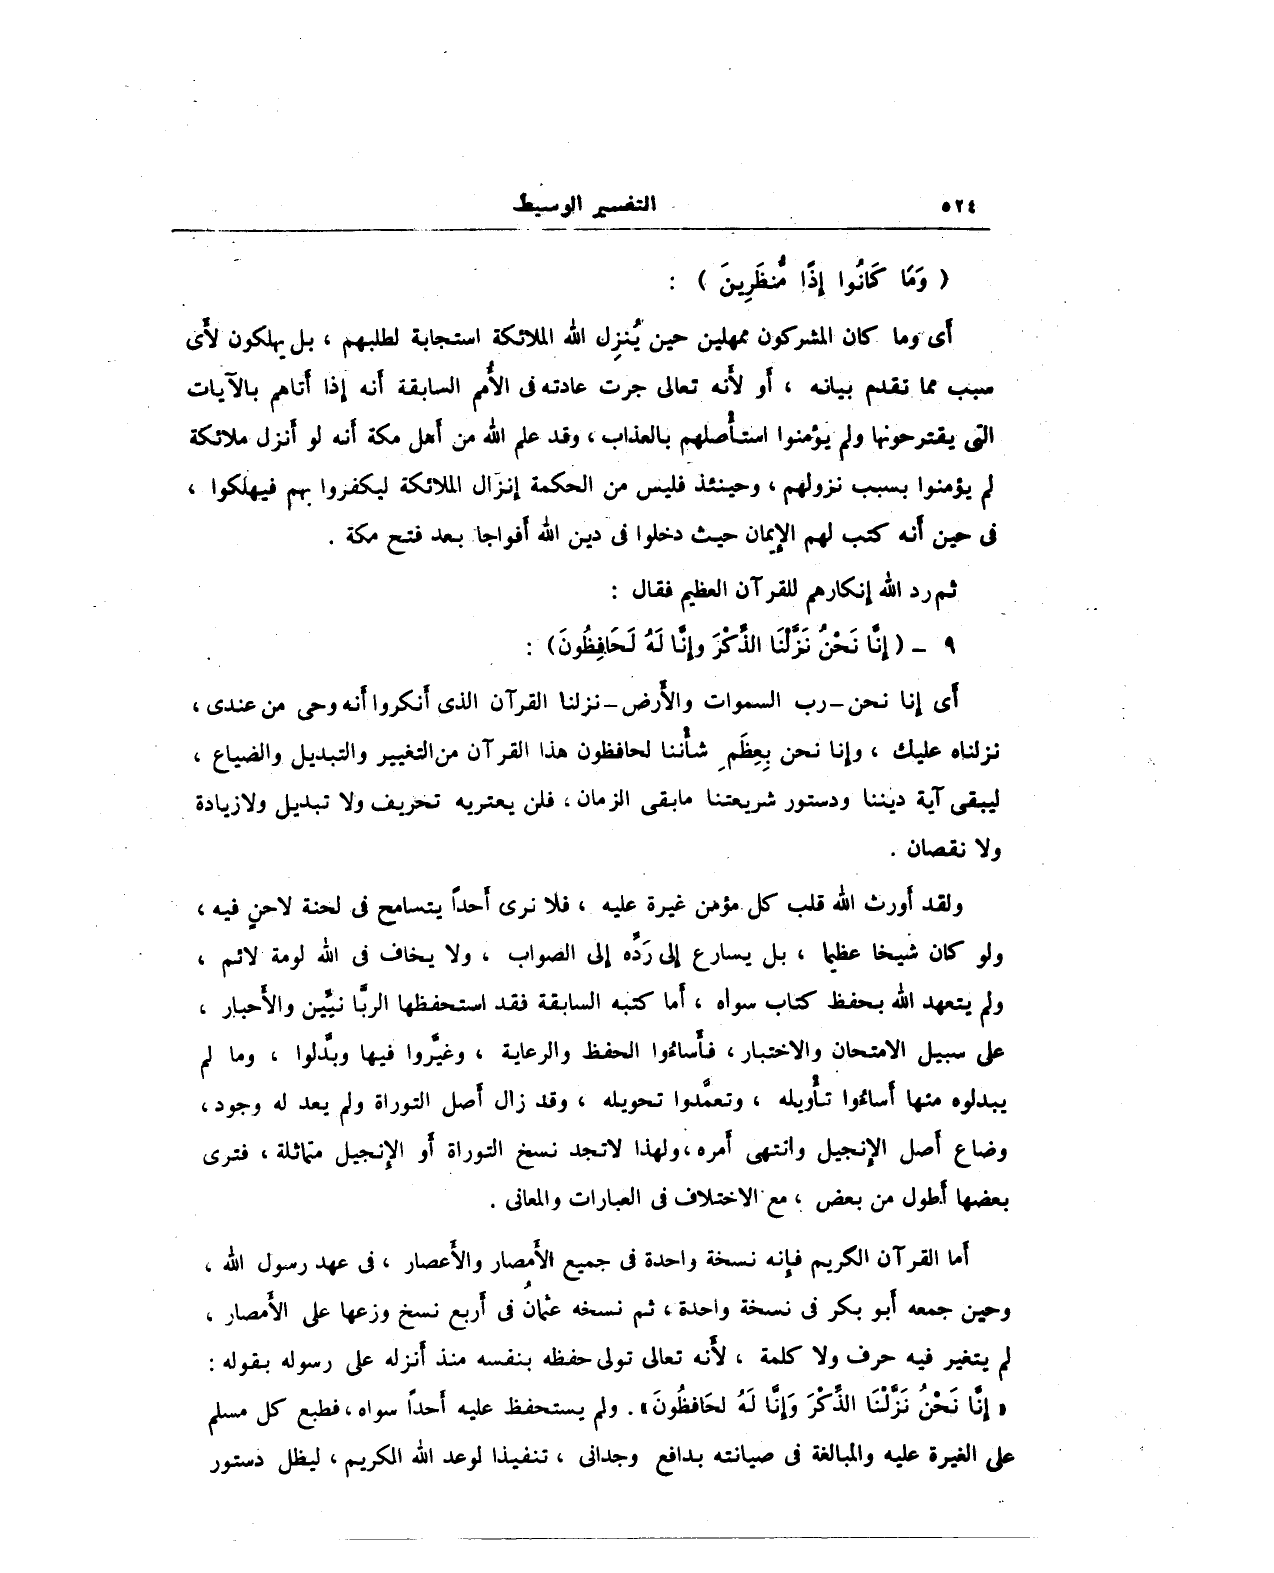 ٥٢٤ التفسير الوسيط
( وَمَا كَانُوا إِذًا مُّنظَرِينَ ) :
أى وما كان المشركون ممهلين حين يُنزِل الله الملائكة استجابة لطلبهم ، بل يهلكون لأى
سبب مما تقدم بيانه ، أو لأنه تعالى جرت عادته فى الأُمم السابقة أنه إذا أتاهم بالآيات
التى يقترحونها ولم يؤمنوا استأصلهم بالعذاب ، وقد علم الله من أهل مكة أنه لو أنزل ملائكة
لم يؤمنوا بسبب نزولهم ، وحينئذ فليس من الحكمة إنزال الملائكة ليكفروا بهم فيهلكوا ،
فى حين أنه كتب لهم الإيمان حيث دخلوا فى دين الله أفواجا بعد فتح مكة .
ثم رد الله إنكارهم للقرآن العظيم فقال :
٩ - ( إِنَّا نَحْنُ نَزَّلْنَا الذِّكْرَ وإِنَّا لَهُ لَحَافِظُونَ) :
أى إنا نحن - رب السموات والأرض - نزلنا القرآن الذى أنكروا أنه وحى من عندى ،
نزلناه عليك ، وإنا نحن بِعِظَمِ شأننا لحافظون هذا القرآن من التغيير والتبديل والضياع ،
ليبقى آية ديننا ودستور شريعتنا مابقى الزمان ، فلن يعتريه تحريف ولا تبديل ولازيادة
ولا نقصان .
ولقد أورث الله قلب كل مؤمن غيرة عليه ، فلا نرى أحداً يتسامح فى لحنة لاحنٍ فيه ،
ولو كان شيخا عظيما ، بل يسارع إلى رَدِّه إلى الصواب ، ولا يخاف فى الله لومة لائم ،
ولم يتعهد الله بحفظ كتاب سواه ، أما كتبه السابقة فقد استحفظها الربَّا نيِّين والأحبار ،
على سبيل الامتحان والاختبار ، فأساءُوا الحفظ والرعاية ، وغيَّروا فيها وبدَّلوا ، وما لم
يبدلوه منها أساءُوا تأويله ، وتعمَّدوا تحويله ، وقد زال أصل التوراة ولم يعد له وجود ،
وضاع أصل الإنجيل وانتهى أمره ، ولهذا لاتجد نسخ التوراة أو الإنجيل متماثلة ، فترى
بعضها أطول من بعض ، مع الاختلاف فى العبارات والمعانى .
أما القرآن الكريم فإنه نسخة واحدة فى جميع الأمصار والأعصار ، فى عهد رسول الله ،
وحين جمعه أبو بكر فى نسخة واحدة ، ثم نسخه عثمانُ فى أربع نسخ وزعها على الأمصار ،
لم يتغير فيه حرف ولا كلمة ، لأنه تعالى تولى حفظه بنفسه منذ أنزله على رسوله بقوله :
« إِنَّا نَحْنُ نَزَّلْنَا الذِّكْرَ وَإِنَّا لَهُ لحَافظُونَ» . ولم يستحفظ عليه أحداً سواه ، فطبع كل مسلم
على الغيرة عليه والمبالغة فى صيانته بدافع وجدانى ، تنفيذا لوعد الله الكريم ، ليظل دستور